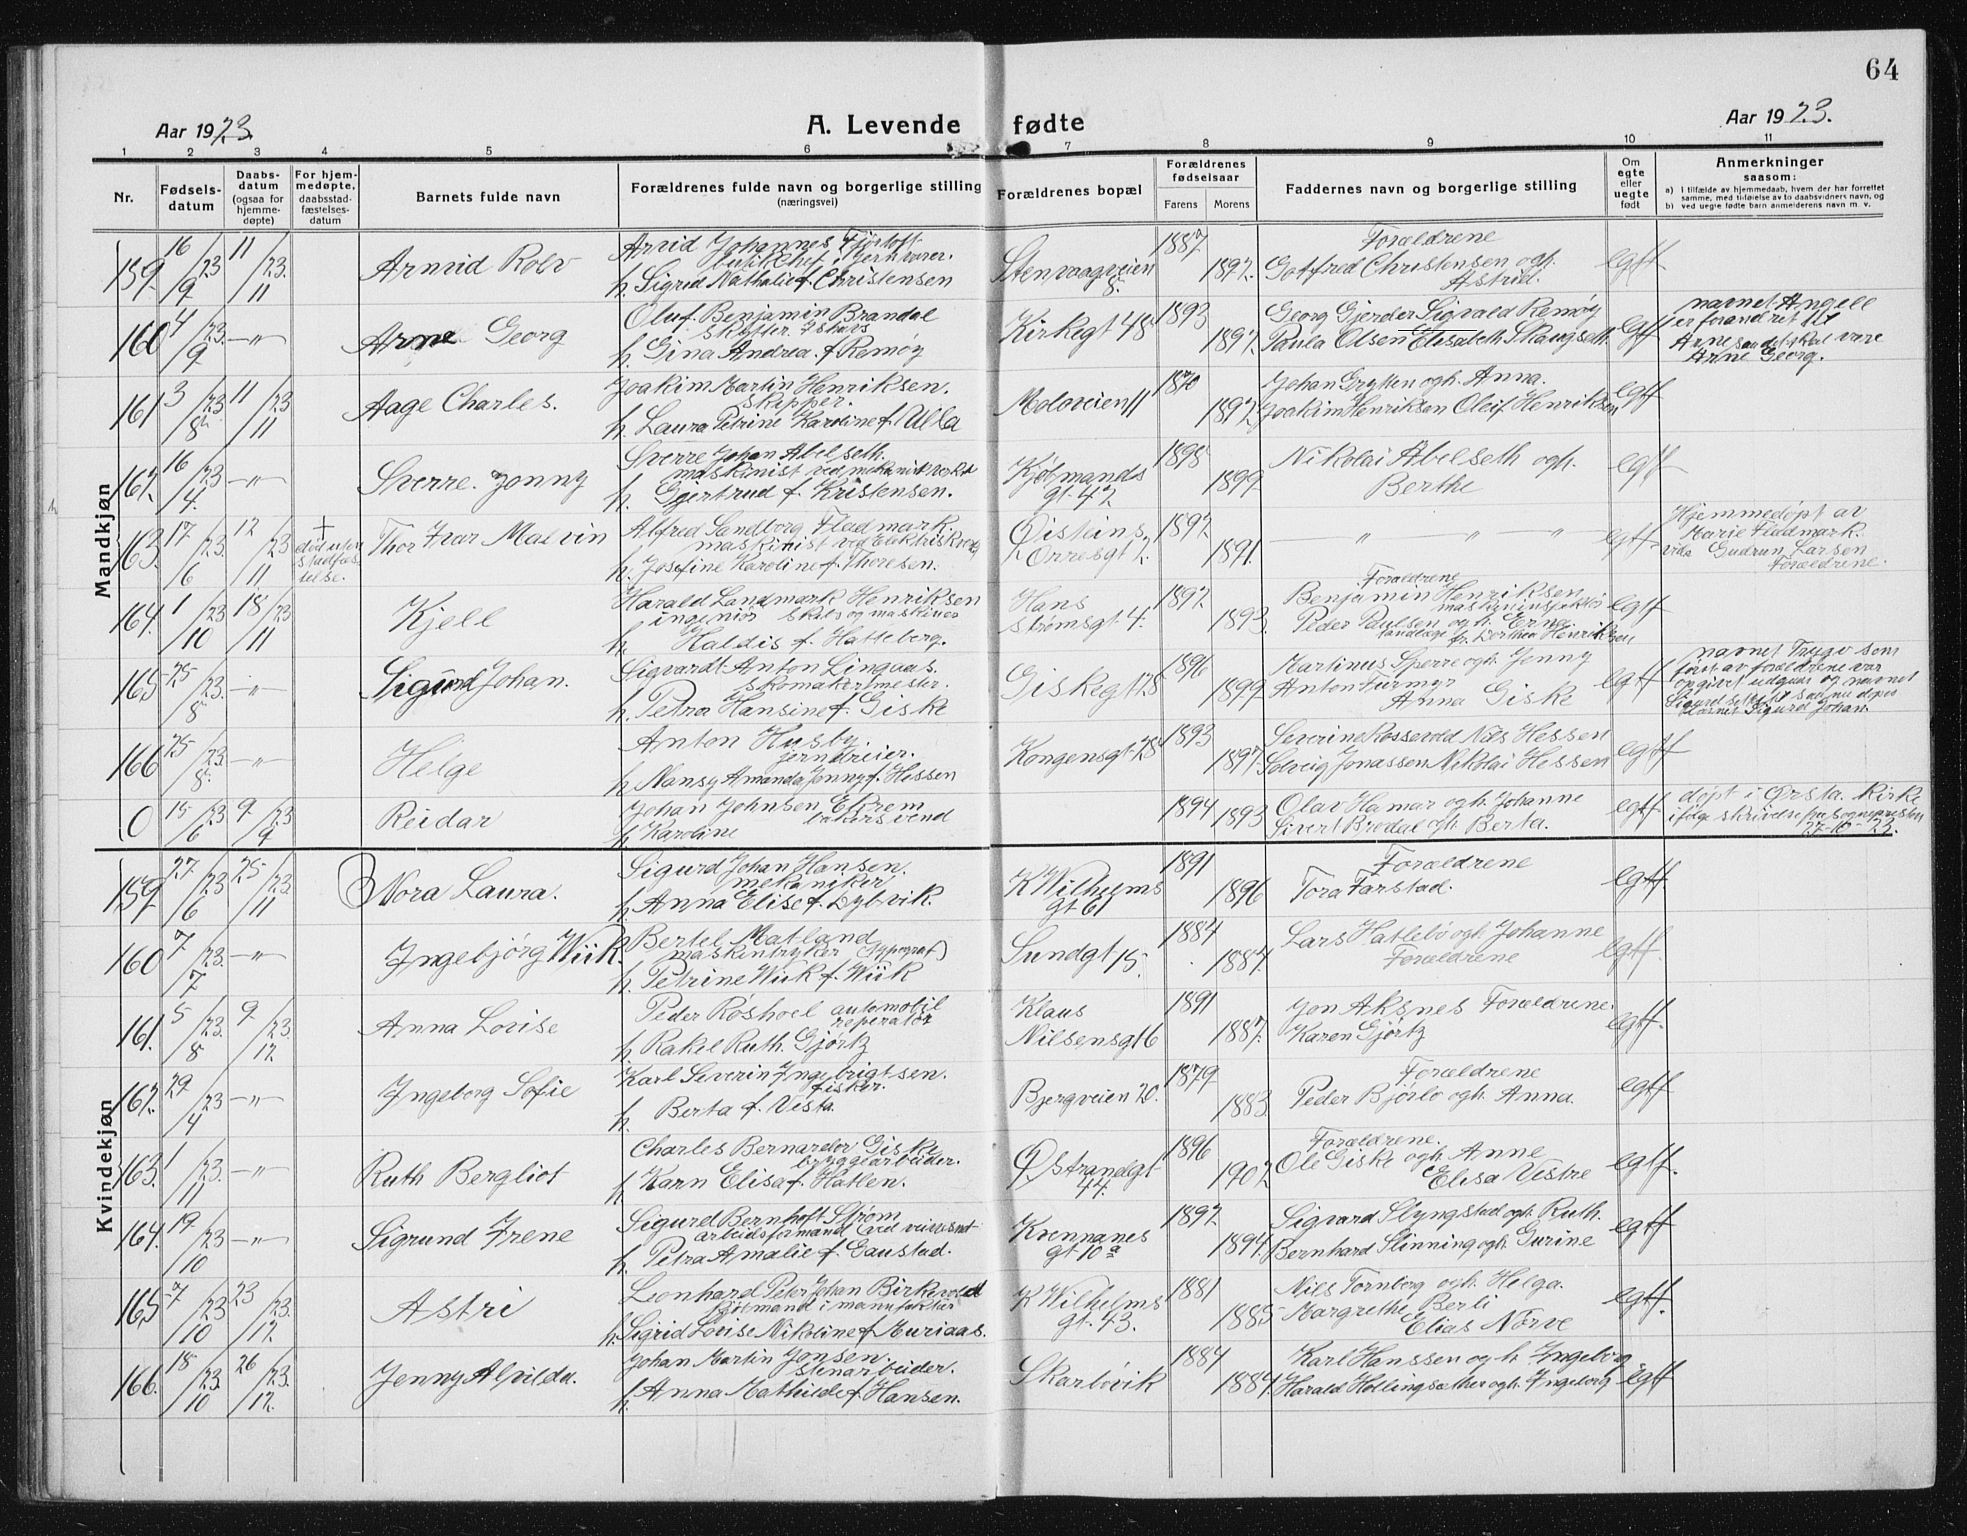 64
Aar 1923.
A. Levende fødte
Aar 1923.
1 2 3 4 5 6 7 8 9 10 11
Nr.
Fødsels-
datum
Daabs-
datum
(ogsaa for
hjemme-
døpte)
For hjem-
medøpte,
daabsstad-
fæstelses-
datum
Barnets fulde navn
Forældrenes fulde navn og borgerlige stilling
(næringsvei)
Forældrenes bopæl
Forældrenes
fødselsaar
Farens Morens
Faddernes navn og borgerlige stilling
Om
egte
eller
uegte
født
Anmerkninger
saasom:
a) i tilfælde av hjemmedaab, hvem der har forrettet
samme, med tilføielse av to daabsvidners navn, og
b) ved uegte fødte barn anmelderens navn m. v.
Mandkjøn
159 16/9 23 11/11 23. Arnvid Rolv
Arvid Johannes Fjørtoft
h. Sigrid Nathalie f. Christensen
Stenvaagveien 8.
1887 1897.
Forældrene
Gotfred Christensen ogh.
Astrid.
egtf
160 4/9 23. —"— Arne Georg
Oluf Benjamin Brandal
h. Gina Andrea f. Remøy
Kirkegt 48
1893 1897.
Georg Gjerder Sigvald Remøy
Paula Olsen Elisabeth Skaugseth
egtf
navnet Angell
er forandret til
Arne saa det skal være
Arne Georg.
161 3/8 23 11/11 23 Aage Charles.
Joakim Martin Henriksen.
skipper.
h. Laura Petrine Karoline f. Ulla
Moloveien 11
1870 1897
Johan Gryten ogh. Anna.
Joakim Henriksen Oleif Henriksen
egtf
162. 16/4. 23 —"— Sverre Jonny
Sverre Johan Abelseth.
maskinist ved mekanisk verksted
h. Gjertrud f. Kristensen.
Kjøbmands
gt. 42
1898 1899
Nikolai Abelseth ogh.
Berthe
egtf
163. 17/6 23. 12/11 23
+
død uten
stadfæs-
telse.
Thor Ivar Malvin
Alfred Sandborg Fladmark.
maskinist ved Elektriskverk
h. Josefine Karoline f. Thoresen.
Øisteins
Orresgt 2.
1892. 1891.
—"— —"— —"—
egtf
Hjemmedøpt av
Marie Fladmark.
vida Gudrun Larsen
Forældrene.
164. 1/10 23 18/11 23 Kjell
Harald Landmark Henriksen
ingeniør skibs og maskiner
h. Haldis f. Hatleberg.
Hans
Strømsgt 4.
1892. 1893.
Forældrene
Benjamin Henriksen
maskininspektør
Peder Paulsen ogh. Erna
tandlæge fr. Dorthea Henriksen
egtf
165 25/8 23. —"— Sigurd Johan.
Sigvardt Anton Lingaas.
skomakermester.
h. Petra Hansine f. Giske
Giskegt 28
1896 1899
Martinus Sperre ogh. Jenny
Anton Furmyr
Anna Giske
egtf
navnet Trygve som
først av forældrene var
opgivet utgaar og navnet
Sigurd settes saa nu døpes
barnet Sigurd Johan.
166 25/8 23. —"— Helge
Anton Husby.
jerndreier.
h. Nansy Amanda Jenny f. Hessen
Kongensgt. 28
1893 1897
Severine Rossevold Nils Hessen
Solveig Jonassen Nikolai Hessen
egtf
0 15/6 23 9/9 23 Reidar
Johan Johnsen Ekrem
bakersvend
h. Karoline
1894 1893
Olav Hamar ogh. Johanne
Sivert Brodal ogh. Berta.
egtf
døpt i Ørsta kirke
ifølge skrivelse fra sognepresten
27-10-23.
Kvindekjøn
159 27/6 23 25/11 23. Nora Laura.
Sigurd Johan Hansen.
mekaniker
h. Anna Elise f. Dybvik.
K Wilhelms
gt 61
1891 1896
Forældrene
Tora Farstad.
egtf.
160 7/7 23. —"— Ingebjørg Wiik.
Bertel Matland
maskintrykker (typograf)
h. Petrine Wiik f. Wiik
Sundgt 15.
1884 1887.
Lars Hatlebø ogh. Johanne
Forældrene
egtf.
161. 5/8 23. 9/12 23. Anna Lovise
Peder Røshoel automobil
reperatør
h. Rakel Ruth. Gjørtz
Klaus
Nilsensgt 6
1891 1887.
Jon Aksnes Forældrene.
Karen Gjørtz
egtf.
162. 29/4 23 —"— Ingeborg Sofie
Karl Severin Ingebrigtsen.
fisker.
h. Berta f. Vesta.
Bjergveien 20.
1879 1883
Forældrene
Peder Bjørlo ogh. Anna.
egtf
163. 1/11 23. —"— Ruth Bergliot
Charles Bernardor Giske
bryggearbeider.
h. Karn Elisa f. Hatlen.
Ø. Strandgt
44.
1896 1902
Forældrene.
Ole Giske ogh Anne
Elisa Vestre
egtf.
164. 19/10 23 —"— Sigrund Irene
Sigurd Bernhoft Strøm
arbeidsformand ved veivesnet
h. Petra Amalie f. Gaustad.
Krennanes
gt 10a
1892. 1894.
Sigvard Slyngstad ogh. Ruth.
Bernhard Slinning ogh. Gurine
egtf
165 7/10 23 23/12. 23. Astri
Leonhard Peter Johan Birkevold
kjøbmand i manufaktur
h. Sigrid Lovise Nikoline f. Muriaas.
K Wilhelms
gt. 43.
1881 1885
Nils Tornberg ogh. Helga.
Margrethe Berli
Elias Nørve
egtf.
166. 18/10 23. 26/12. 23. Jenny Alvilda.
Johan Martin Jonsen.
stenarbeider.
h. Anna Mathilde f. Hansen.
Skarbøvik
1884 1884.
Karl Hanssen og h. Ingeborg
Harald Hollingsæther ogh. Ingeborg
egtf